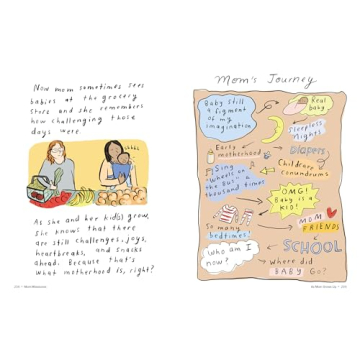 Now mom sometimes sees
babies at the grocery
store and she remembers
how challenging those
days were.
shhhs
As she and her kid(s) grow,
she knows that there
are still challenges, joys,
heartbreaks, and snacks
ahead. Because that's
what motherhood is, right?
Mom's Journey
Baby still
a figment
of my
imagination
Real
baby!
Sleepless
Nights
Early
motherhood
Diapers
Sing
"Wheels on
the Bus" a
thousand times
Childcare
conundrums
OMG!
Baby is a
KID!
So many
bedtimes
MOM
FRIENDS
Who am I
now?
SCHOOL
Where did
BABY Go?